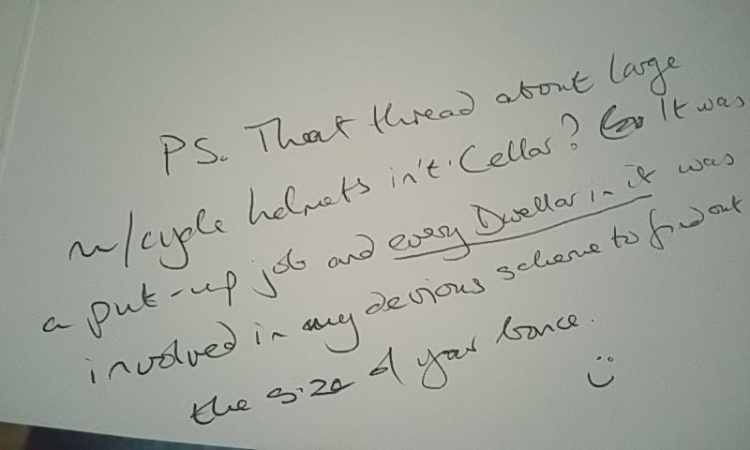 PS. That thread about large
m/cycle helmets in 't. Cellar? It was
a put-up job and every Dwellar in it was
involved in my devious scheme to find out
the size of your bonce.